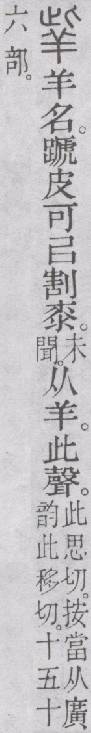 羊名。蹏皮可㠯割桼。未聞。从羊。此聲。此思切。按當从廣韵此移切。十五十
六部。